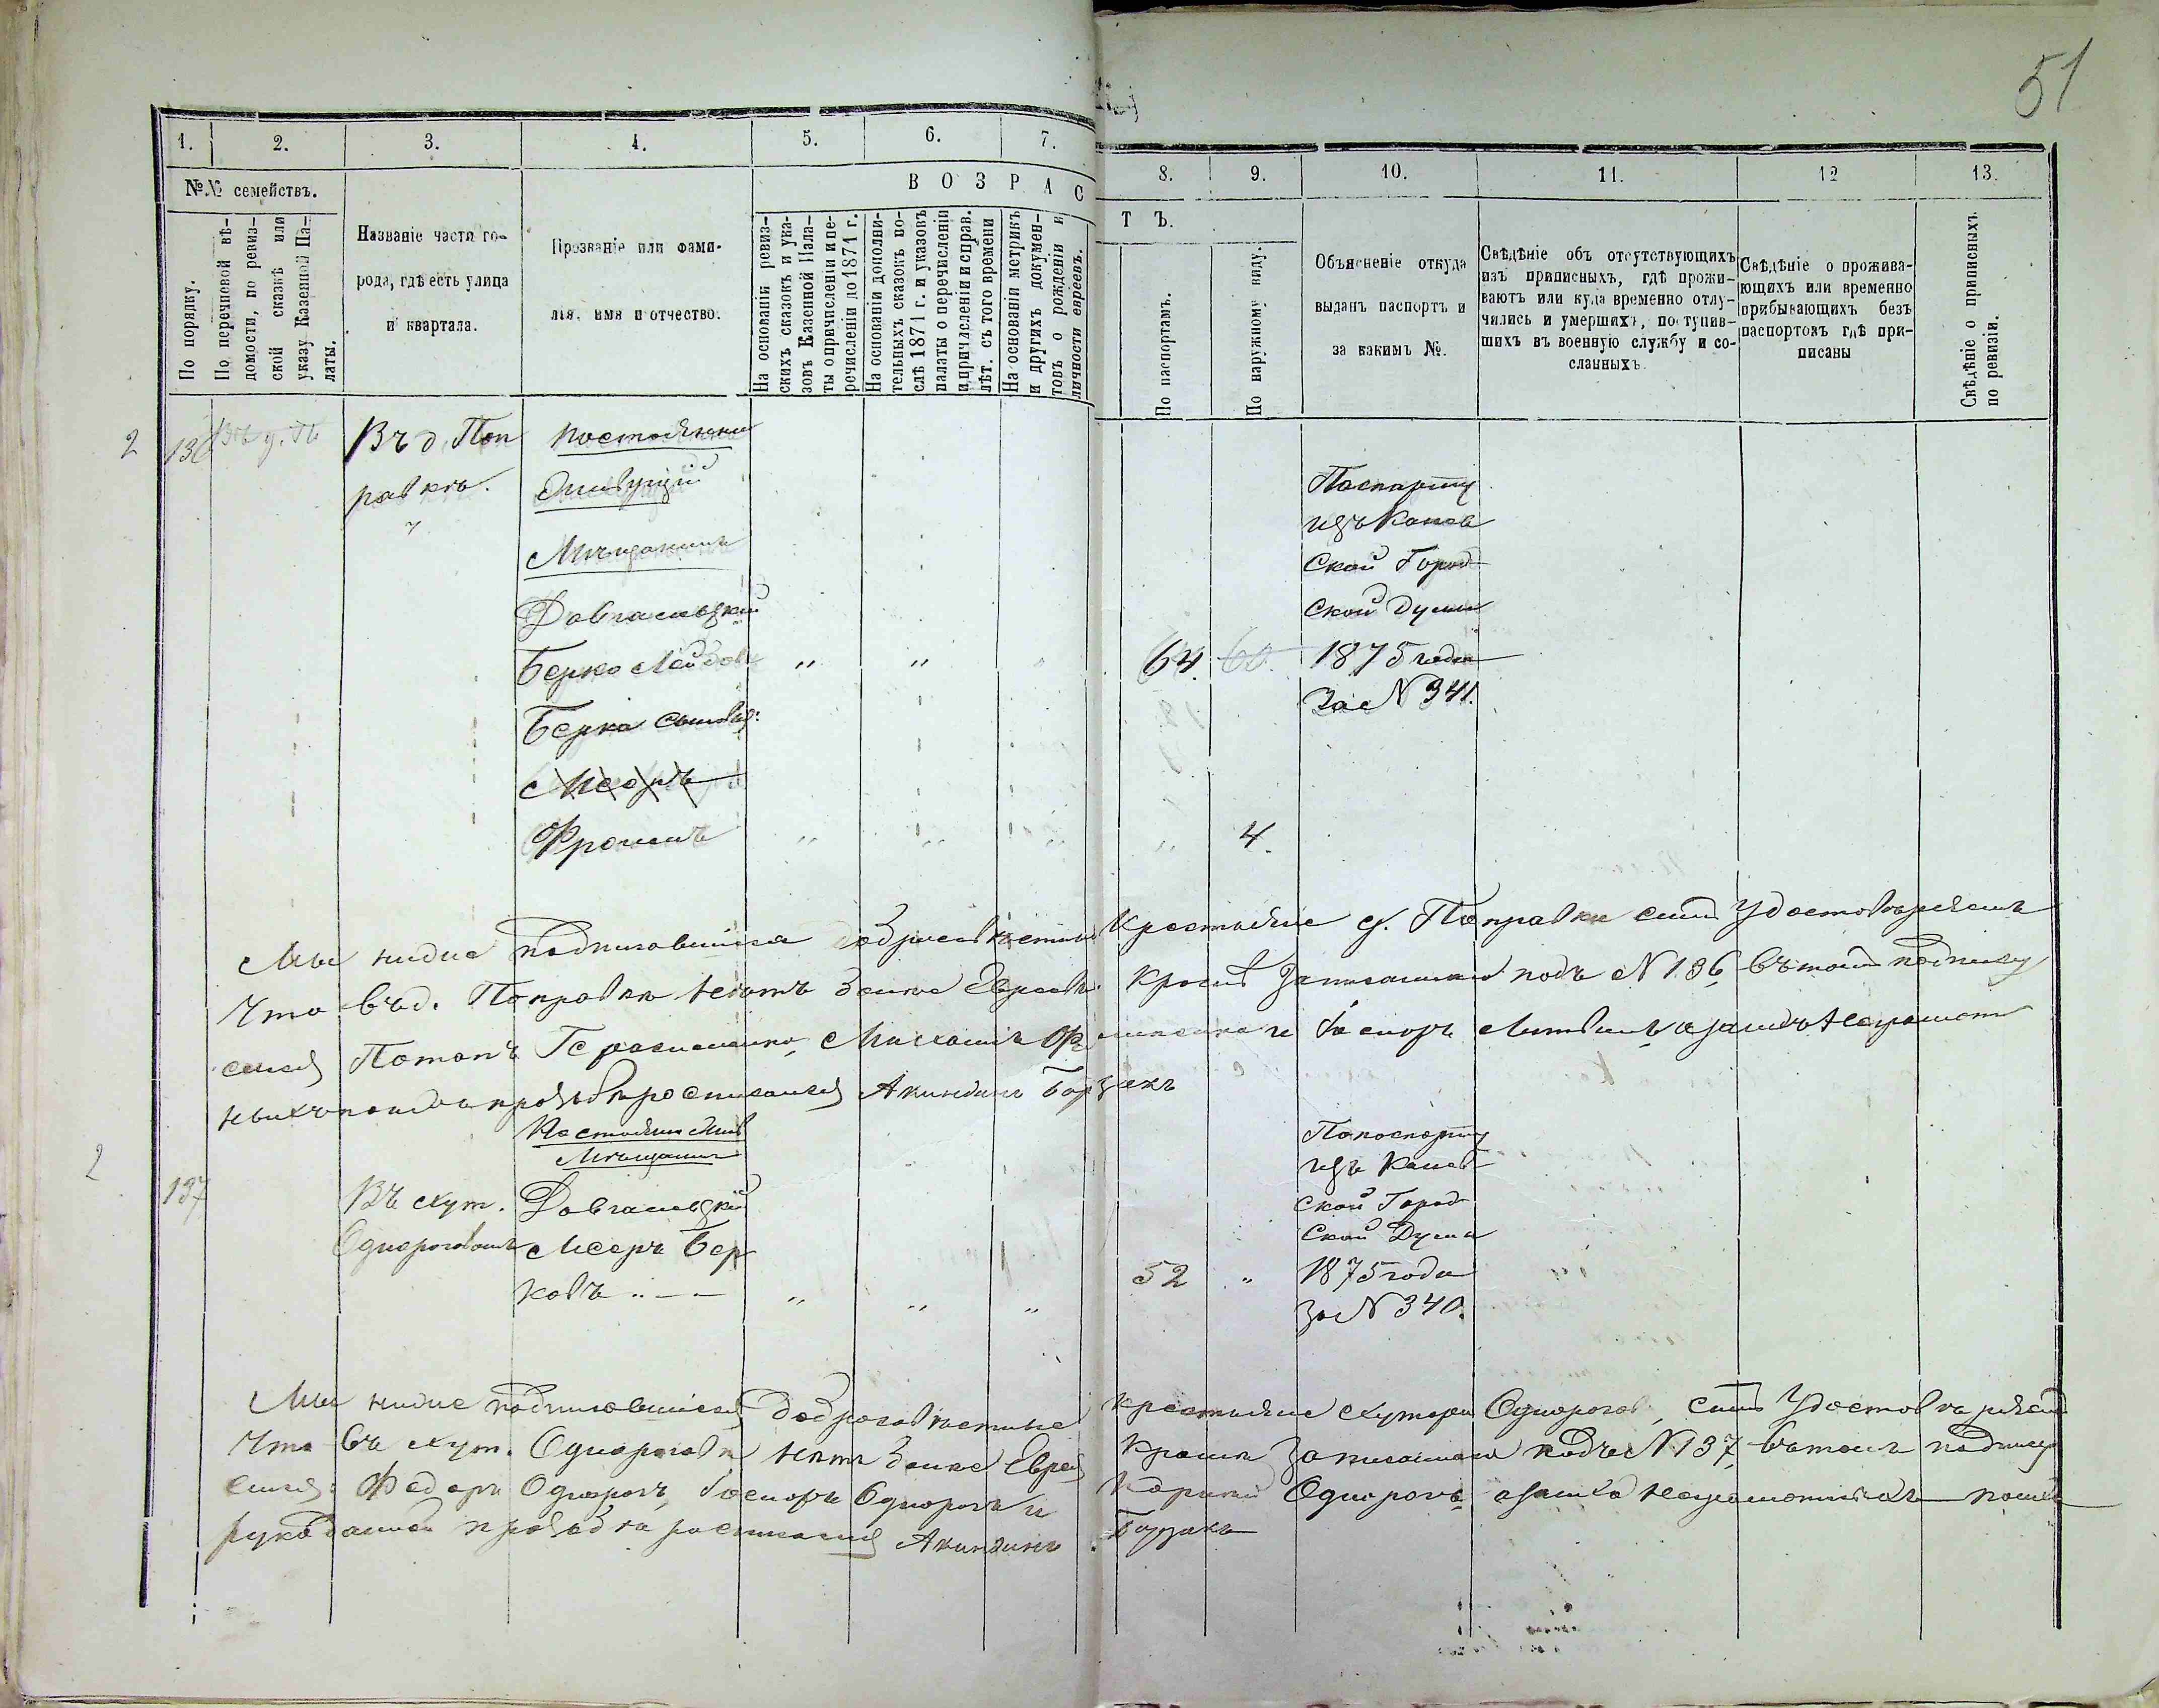 51
1. 2. 3. 4. 5. 6. 7.
8. 9. 10. 11. 12 13.
№№ семействъ.
По порядку.
По перечневой вѣ-
домости, по ревиз-
ской сказкѣ или
указу Казенной Па-
латы.
Названіе части го-
рода, гдѣ есть улица
и квартала.
Прозваніе или фами-
лія, имя и отчество.
ВОЗРАС
Т Ъ.
На основаніи ревиз-
скихъ сказокъ и ука-
зовъ Казенной Пала-
ты о причисленіи и пе-
речисленіи до 1871 г.
На основаніи дополни-
тельныхъ сказокъ по-
слѣ 1871 г. и указовъ
палаты о перечисленіи
и причисленіи и справ.
лѣт. съ того времени
На основаніи метрикъ
и другихъ докумен-
товъ о рожденіи и
личности евреевъ.
По паспортамъ.
По наружному виду.
Объясненіе откуда
выданъ паспортъ и
за какимъ №.
Свѣдѣніе объ отсутствующихъ
изъ приписныхъ, гдѣ прожи-
ваютъ или куда временно отлу-
чились и умершихъ, поступив-
шихъ въ военную службу и со-
сланныхъ
Свѣдѣніе о прожива-
ющихъ или временно
прибывающихъ безъ
паспортовъ гдѣ при-
писаны
Свѣдѣніе о приписныхъ
по ревизіи.
2 136 Въ д. Поп
равкѣ.
Постоянно
Живущій
Мѣщанинъ
Довгалевскій
Берко Лейбовъ " " " 64 60
Берка сыновья:
Мееръ
Фроимъ " " " " 4.
Паспорту
изъ Канев
Ской Город
Ской Думы
1875 года
За № 341.
Мы ниже подписавшіеся добросовѣстные Крестьяне д. Поправки симъ Удостовѣряемъ
Что въ д. Поправкѣ нетъ болие Евреевъ Кромѣ Записанныхъ подъ № 136, въ томъ подпису
емся Потапъ Герасименко, Михаилъ и Гаспоръ Литвинъ, а за нихъ Неграмот
ныхъ по ихъ прозьбѣ росписался Акиндинъ Борзакъ
2 137
Въ хут.
Однороговомъ
Постоянно Жив
Мѣщанинъ
Довгалевскій
Мееръ Бер
ковъ " " " 52 "
По паспорту
изъ Канев
ской Город
Ской Думы
1875 года
За № 340.
Мы ниже подписавшіеся Добросовѣстные Крестьяне хутора Однорогов, симъ Удостовѣряемъ
Что въ хут. Однорогов нѣтъ болие Еврей Кромѣ Записанного подъ № 137, въ томъ подпису
емся: Федоръ Однорогъ, Гаспоръ Однорогъ и Однорогъ, а за ихъ Неграмотныхъ по ихъ
Акиндинъ Борзакъ